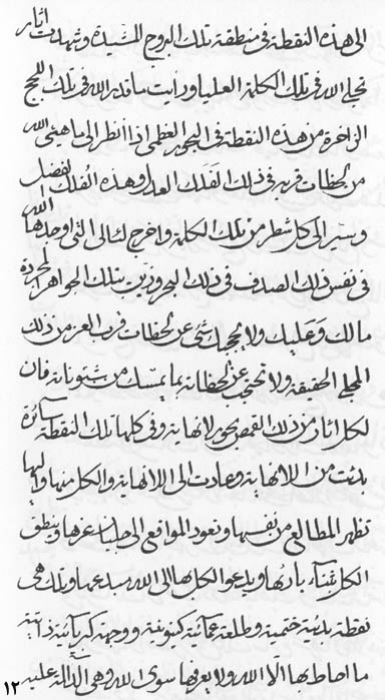 الى هذه النقطة فى منطقة تلك البروج المشيدة وشهدت اثار
تجلى الله فى تلك الكلمة العليا ورايت ما قدر الله فى تلك اللجج
الزاخرة من هذه النقطة فى البحور العظمى اذا انظر الى ما هيئى الله
من لحظات قربه فى ذلك الفلك العدل وهذه الفلك الفضل
وسير الى كل شطر من تلك الكلمة واخرج لئالى التى اوجدها الله
فى نفس ذلك الصدف فى ذلك البحر وزين بتلك الجواهر المجردة
مالك وعليك ولا يحجبك شئ عن لحظات قرب العز من ذلك
المجلى الحقيقة ولا تحتجب عن لحظاته بما يمسك من شئوناته فان
لكل اثار من ذلك القمص بحور لانهاية وفى كلها تلك النقطة سائرة
بدئت من الانهاية وعادت الى اللانهاية والكل منها واليها
تظهر المطالع من نفسها وتعود المواقع الى جلباب عزها وينطق
الكل بثناء بارئها ويدعو الكل بها الى الله مبدعها وتلك هى
نقطة بدئية ختمية وطلعة عمائية كينونية ووجهة كبريائية ذاتية
ما احاط بها الا الله ولا يعرفها سوى الله وهى الدالة عليه
١٢